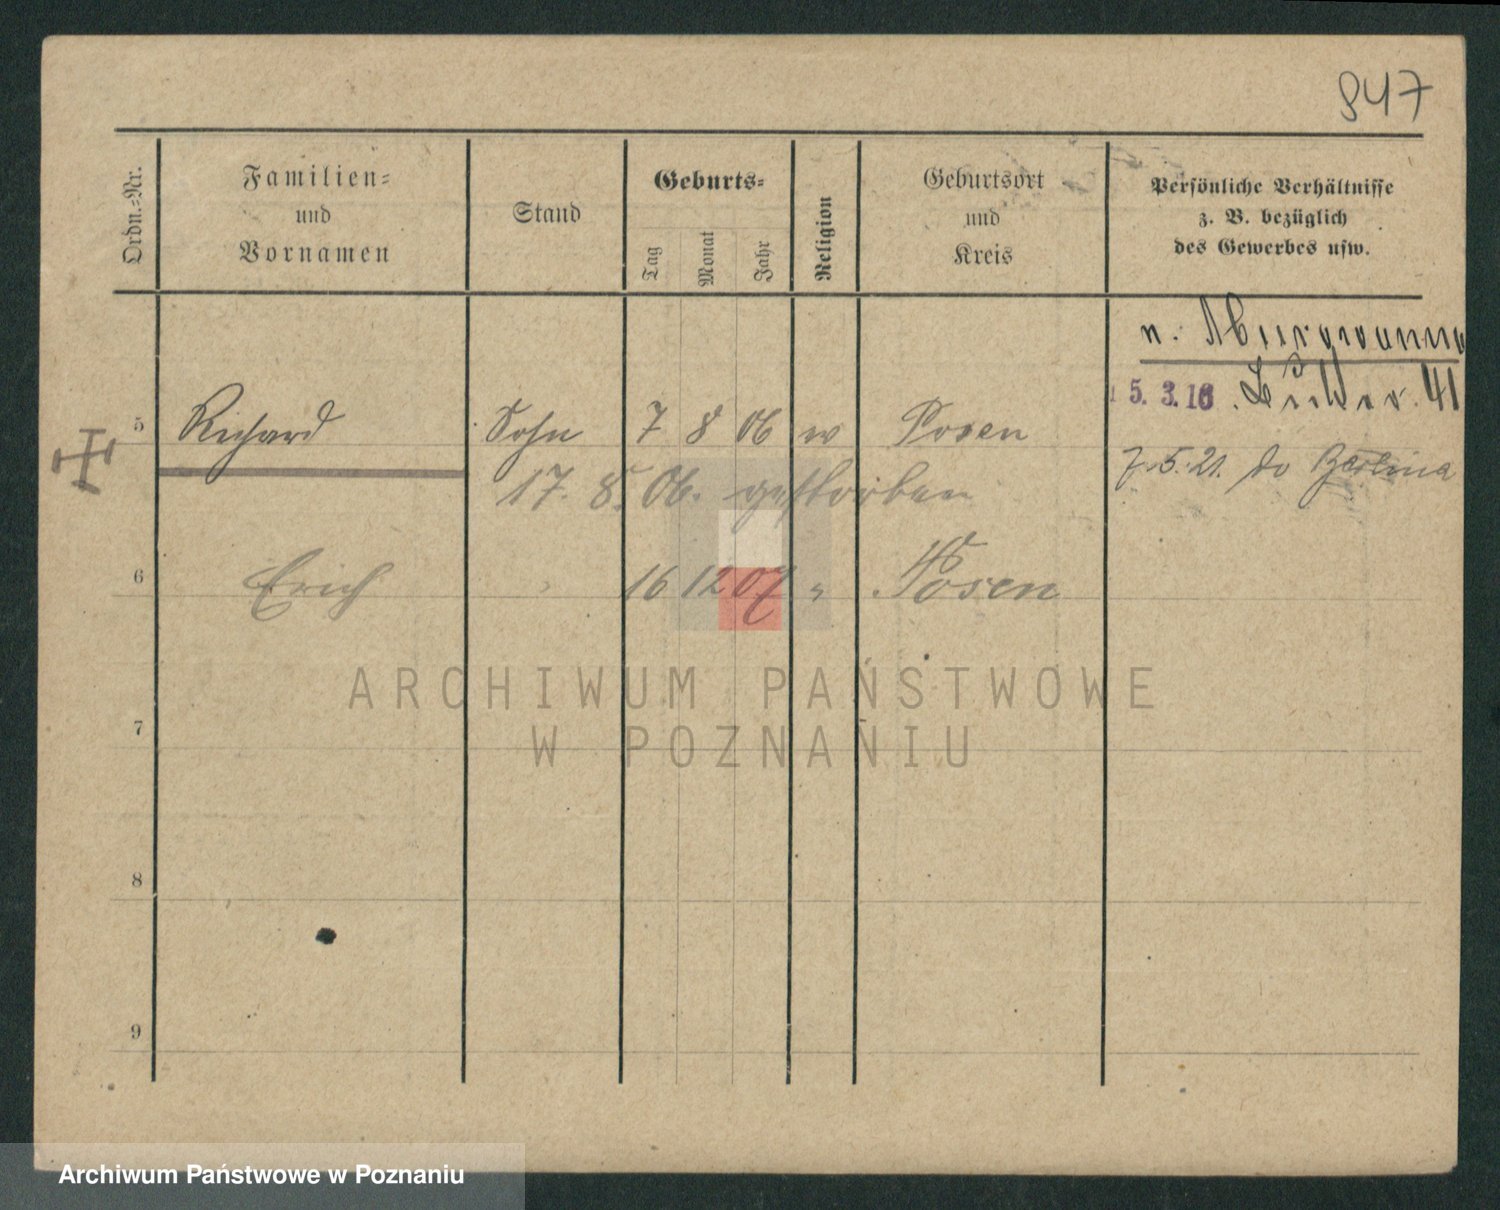 947
Ordn.-Nr.
Familien-
und
Vornamen
Stand
Geburts-
Tag
Monat
Jahr
Religion
Geburtsort
und
Kreis
Persönliche Verhältnisse
z. B. bezüglich
des Gewerbes usw.
n.
5. 3. 16 41
5 Richard Sohn 7 8 06 w Posen
7.5.21. do Berlina
17. 8. 06. gestorben
6 Erich " 16 12 07 " Posen
ARCHIWUM PAŃSTWOWE
W POZNANIU
7
8
9
Archiwum Państwowe w Poznaniu